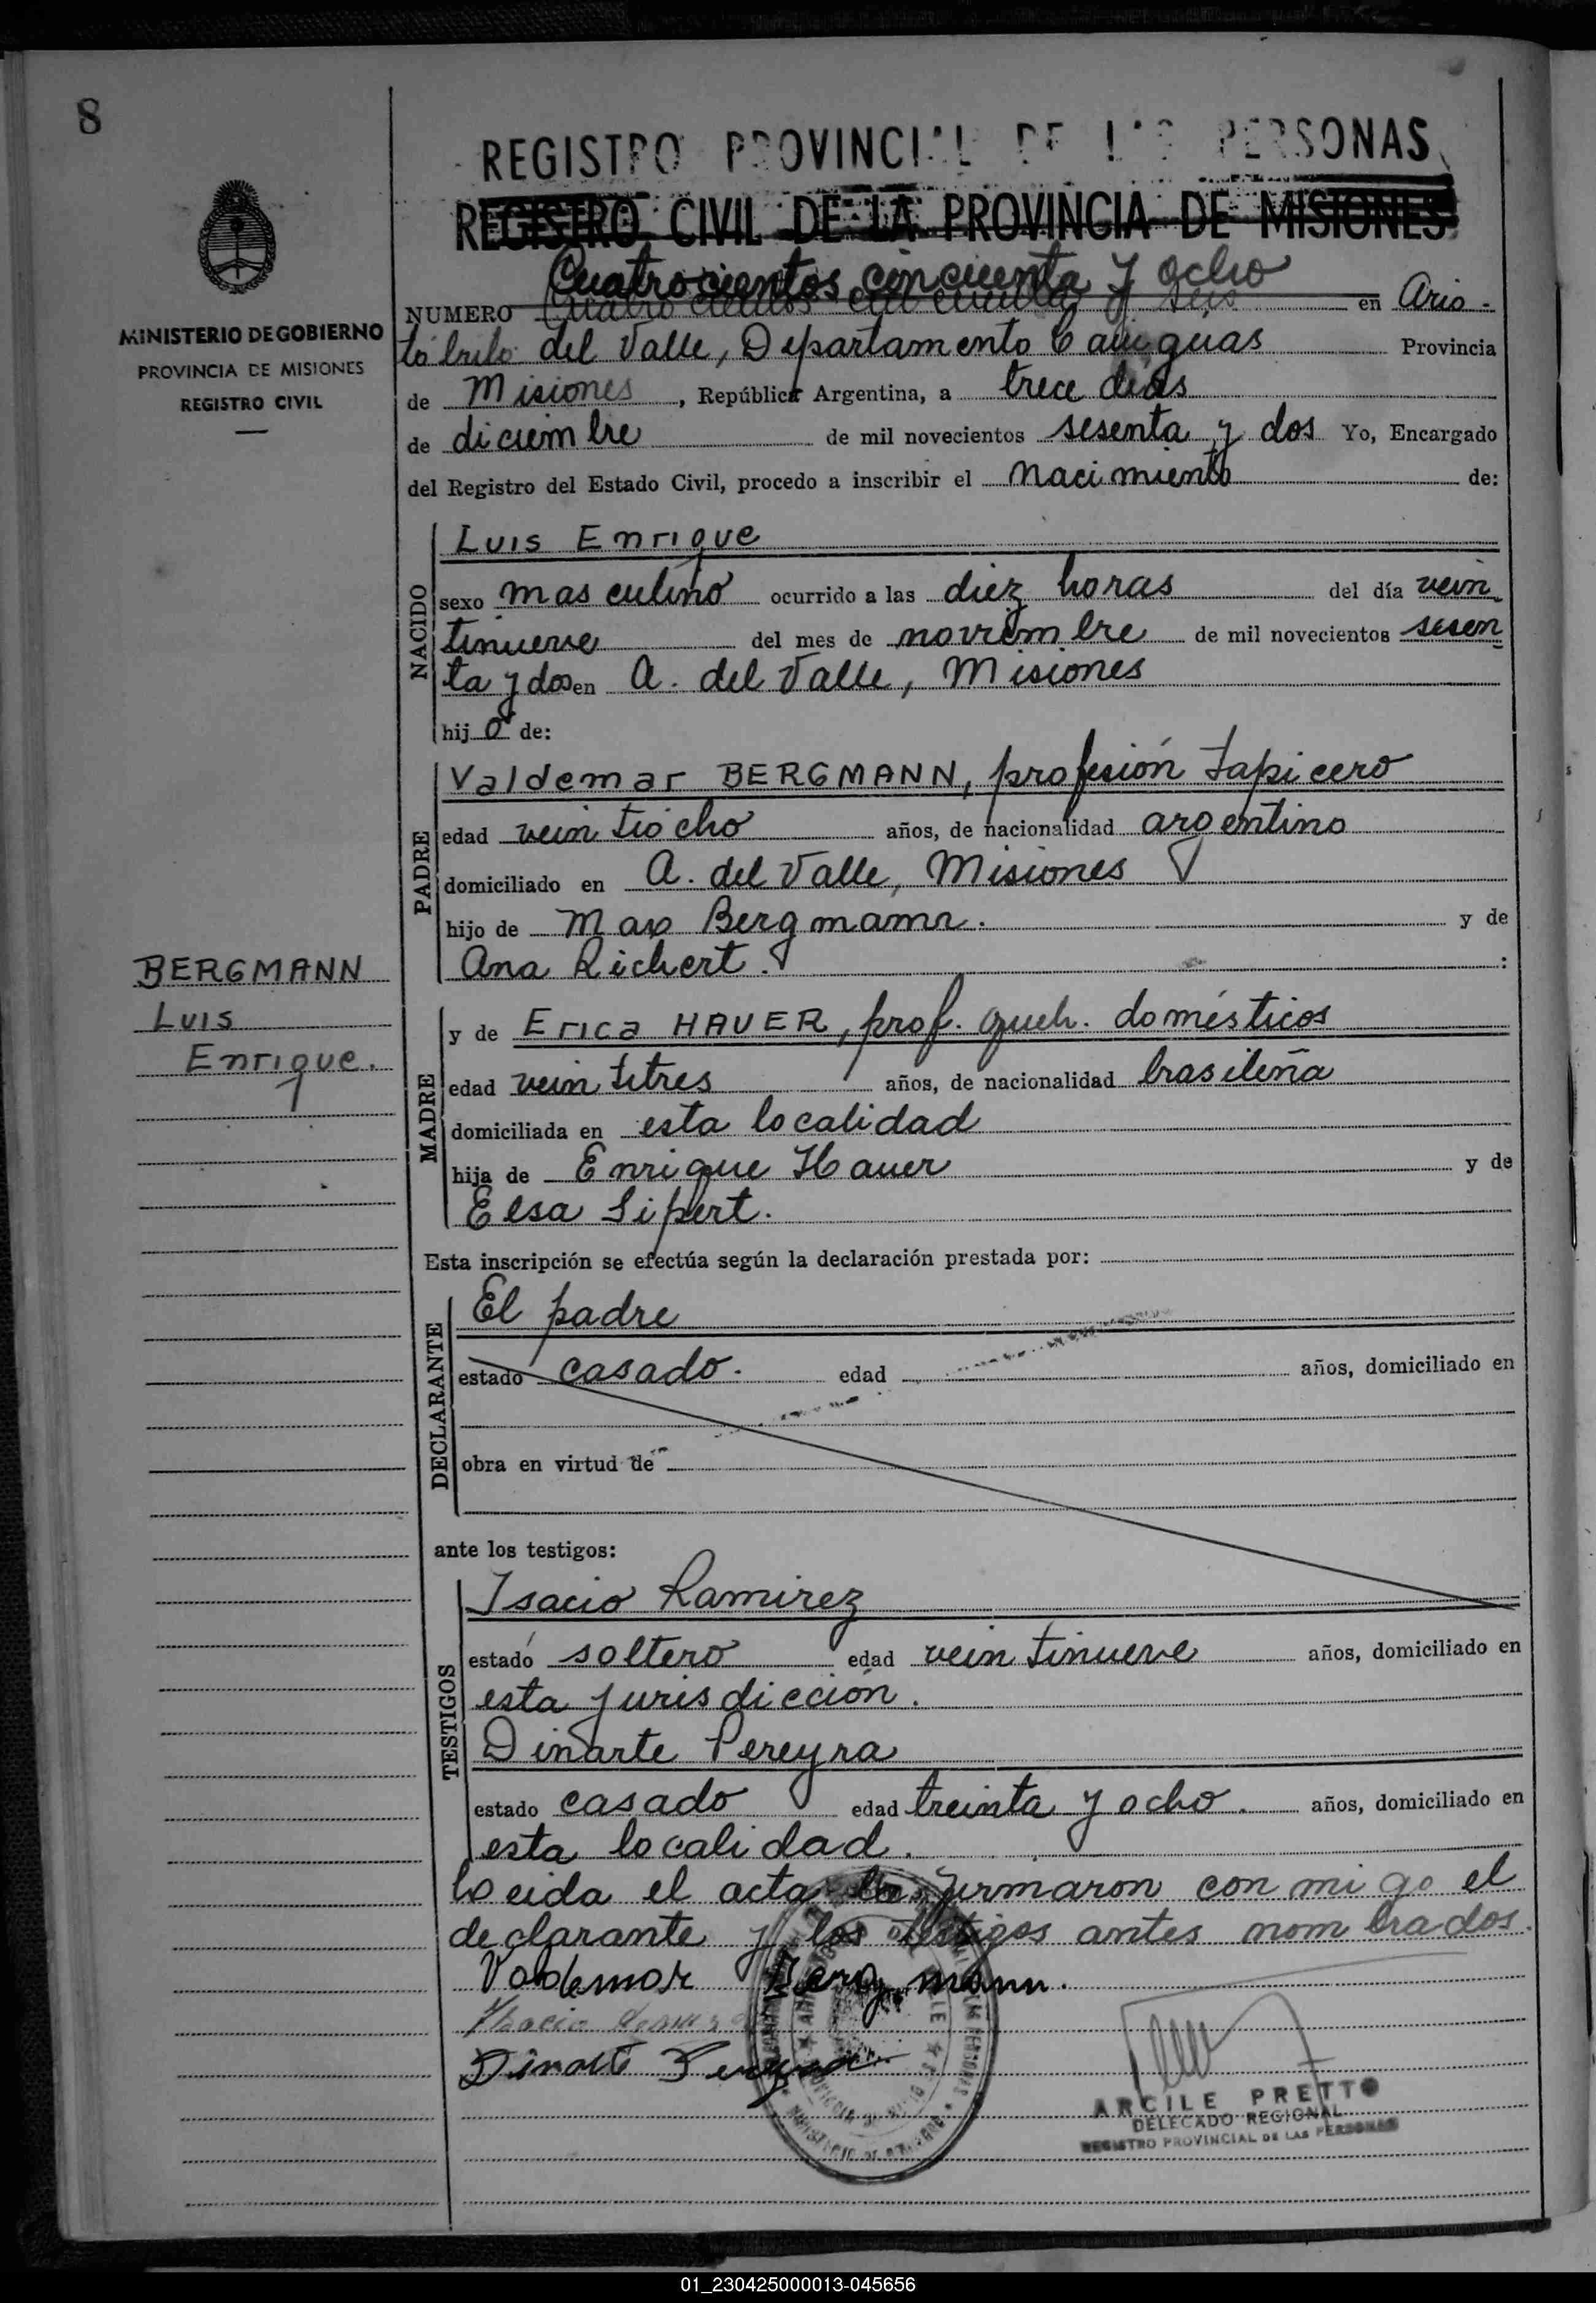 8
REGISTRO PROVINCIAL DE LAS PERSONAS
REGISTRO CIVIL DE LA PROVINCIA DE MISIONES
MINISTERIO DE GOBIERNO
PROVINCIA DE MISIONES
REGISTRO CIVIL
Cuatrocientos cincuenta y ocho
NUMERO Cuatrocientos cincuenta y seis en Aris-
tóbulo del Valle, Departamento Cainguas Provincia
de Misiones, República Argentina, a trece días
de diciembre de mil novecientos sesenta y dos Yo, Encargado
del Registro del Estado Civil, procedo a inscribir el nacimiento de:
NACIDO
Luis Enrique
sexo masculino ocurrido a las diez horas del día vein
tinueve del mes de noviembre de mil novecientos sesen
ta y dos en A. del Valle, Misiones
hijo de:
PADRE
Valdemar BERGMANN, profesión tapicero
edad veintiocho años, de nacionalidad argentino
domiciliado en A. del Valle, Misiones
hijo de Max Bergmann. y de
Ana Richert.:
BERGMANN
Luis
Enrique.
MADRE
y de Erica HAUER, prof. queh. domésticos
edad veintitres años, de nacionalidad brasileña
domiciliada en esta localidad
hija de Enrique Hauer y de
Elsa Sipert.
Esta inscripción se efectúa según la declaración prestada por:
DECLARANTE
El padre
estado casado. edad años, domiciliado en
obra en virtud de
ante los testigos:
TESTIGOS
Isacio Ramirez
estado soltero edad veintinueve años, domiciliado en
esta jurisdicción.
Dinarte Pereyra
estado casado edad treinta y ocho. años, domiciliado en
esta localidad.
Leida el acta la firmaron conmigo el
declarante y los testigos antes nombrados.
Valdemar Bergmann.
Dinarte Pereyra
ARCILE PRETTO
DELEGADO REGIONAL
REGISTRO PROVINCIAL DE LAS PERSONAS
01_230425000013-045656